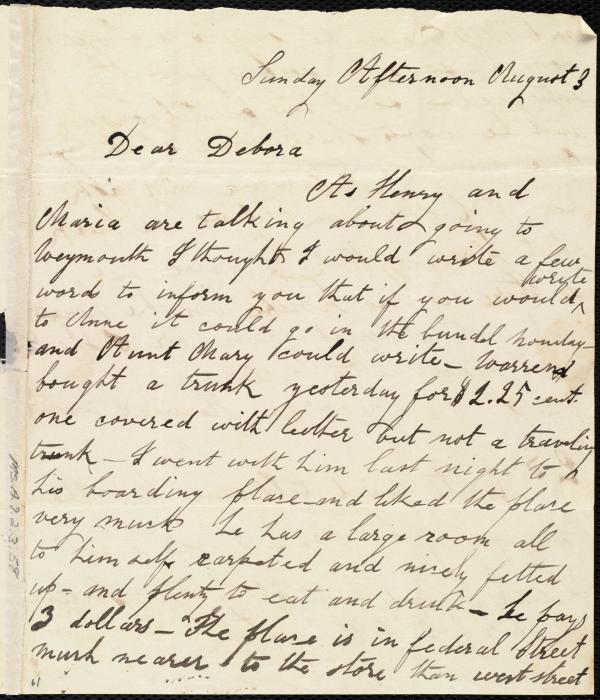 Sunday Afternoon August 3
Dear Debora
As Henry and
Maria are talking about going to
Weymouth I thought I would write a few
word to inform you that if you would write
to Anne it could go in the bundel monday
and Aunt Mary could write - Warren
bought a trunk yesterday for $2.25 cent.
one covered with lether but not a traveling
trunk - I went with him last night to
his boarding place and liked the place
very much he has a large room all
to himself, carpeted and nicely fitted
up - and plenty to eat and drink - he pays
3 dollars - The place is in federal Street
much nearer to the store than west street
Ms.A.9.2.3,58
61